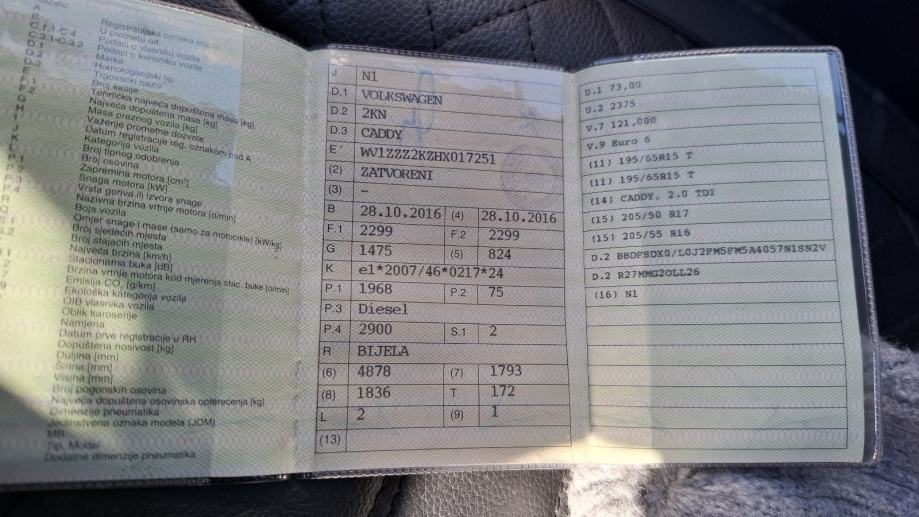 A
B
C.1.1-C.4
C.3.1-C.3.3
D.1
D.2
D.3
E
F.1
F.2
G
H
Registracijska oznaka vozila
U prometu od
Podaci o vlasniku vozila
Podaci o korisniku vozila
Marka
Homologacijski tip
Trgovački naziv
Broj šasije
Tehnička najveća dopuštena masa [kg]
Najveća dopuštena masa [kg]
Masa praznog vozila [kg]
Važenje prometne dozvole
Datum registracije reg. oznakom pod A
Kategorija vozila
Broj tipnog odobrenja
Broj osovina
Zapremina motora [cm³]
Snaga motora [kW]
Vrsta goriva ili izvora snage
Nazivna brzina vrtnje motora [o/min]
Boja vozila
Omjer snage i mase (samo za motocikle) [kW/kg]
Broj sjedećih mjesta
Broj stajaćih mjesta
Najveća brzina [km/h]
Stacionarna buka [dB]
Brzina vrtnje motora kod mjerenja stac. buke [o/min]
Emisija CO₂ [g/km]
Ekološka kategorija vozila
OIB vlasnika vozila
Oblik karoserije
Namjena
Datum prve registracije u RH
Dopuštena nosivost [kg]
Duljina [mm]
Širina [mm]
Visina [mm]
Broj pogonskih osovina
Najveća dopuštena osovinska opterećenja [kg]
Dimenzije pneumatika
Jedinstvena oznaka modela (JOM)
MB
Tip, Model
Dodatne dimenzije pneumatika
J N1
D.1 VOLKSWAGEN
D.2 2KN
D.3 CADDY
E WV1ZZZ2KZHX017251
(2) ZATVORENI
(3) –
B 28.10.2016 (4) 28.10.2016
F.1 2299 F.2 2299
G 1475 (5) 824
K e1*2007/46*0217*24
P.1 1968 P.2 75
P.3 Diesel
P.4 2900 S.1 2
R BIJELA
(6) 4878 (7) 1793
(8) 1836 T 172
L 2 (9) 1
(13)
U.1 73,00
U.2 2375
V.7 121,000
V.9 Euro 6
(11) 195/65R15 T
(11) 195/65R15 T
(14) CADDY, 2.0 TDI
(15) 205/50 R17
(15) 205/55 R16
D.2 BBDFSDX0/L0J2FM5FM5A4057N1SN2V
D.2 R27MMG2OLL26
(16) N1